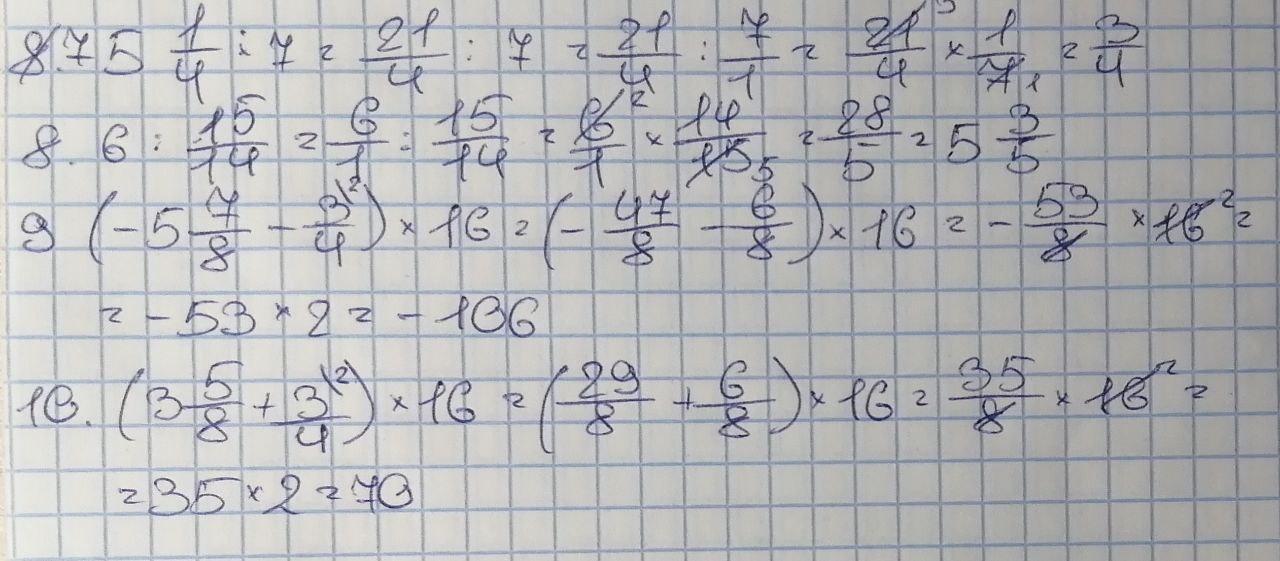 8.7 5 1/4 : 7 = 21/4 : 7 = 21/4 : 7/1 = 21 3/4 × 1/7 1 = 3/4
8. 6 : 15/14 = 6/1 : 15/14 = 6 2/1 × 14/15 5 = 28/5 = 5 3/5
9 (-5 7/8 - 3\2/4) × 16 = (- 47/8 - 6/8) × 16 = - 53/8 × 16 2 =
= - 53 × 2 = - 106
10. (3 5/8 + 3\2/4) × 16 = (29/8 + 6/8) × 16 = 35/8 × 16 2 =
= 35 × 2 = 70